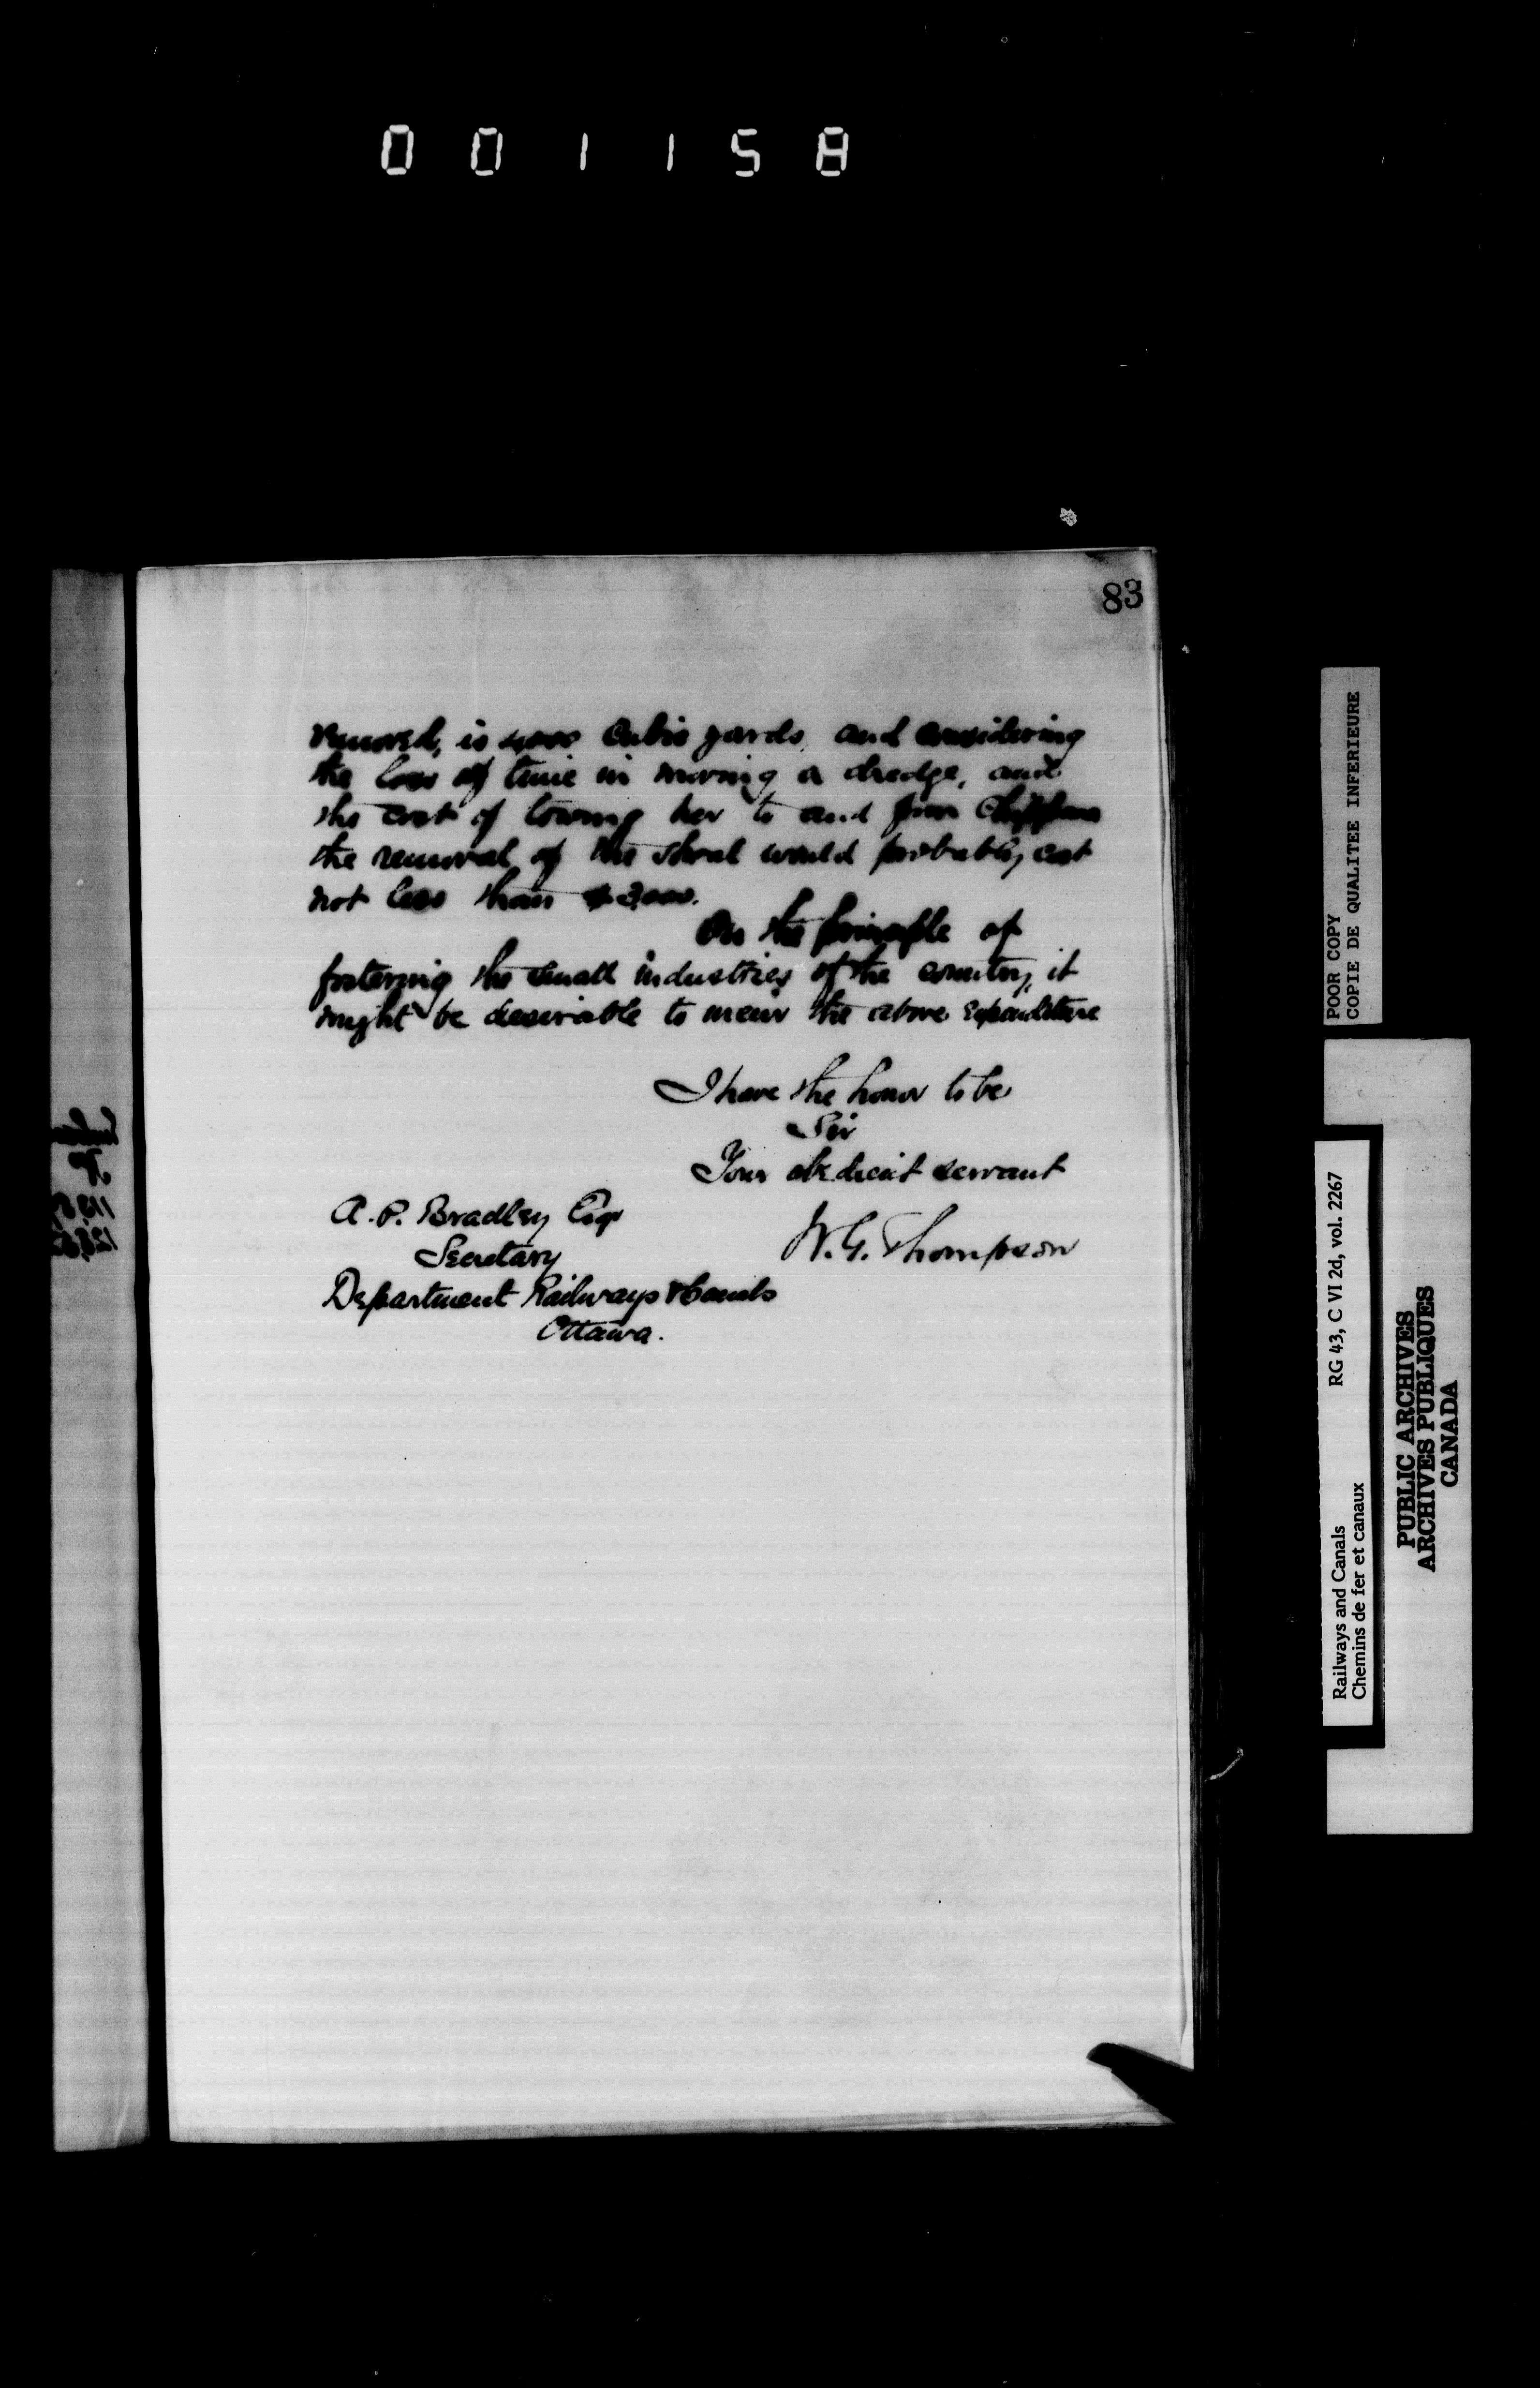 001158
83
removed, is 4000 Cubic yards, and considering
the loss of time in moving a dredge, and
the cost of towing her to and from Chippawa
the removal of the shoal would probably cost
not less than $3,000.
On the principle of
fostering the small industries of the country, it
might be desirable to incur the above expenditure
I have the honor to be
Sir
Your obedient servant
W. G. Thompson
A. P. Bradley Esqr
Secretary
Department Railways & Canals
Ottawa.
POOR COPY
COPIE DE QUALITEE INFERIEURE
Railways and Canals RG 43, C VI 2d, vol. 2267
Chemins de fer et canaux
PUBLIC ARCHIVES
ARCHIVES PUBLIQUES
CANADA